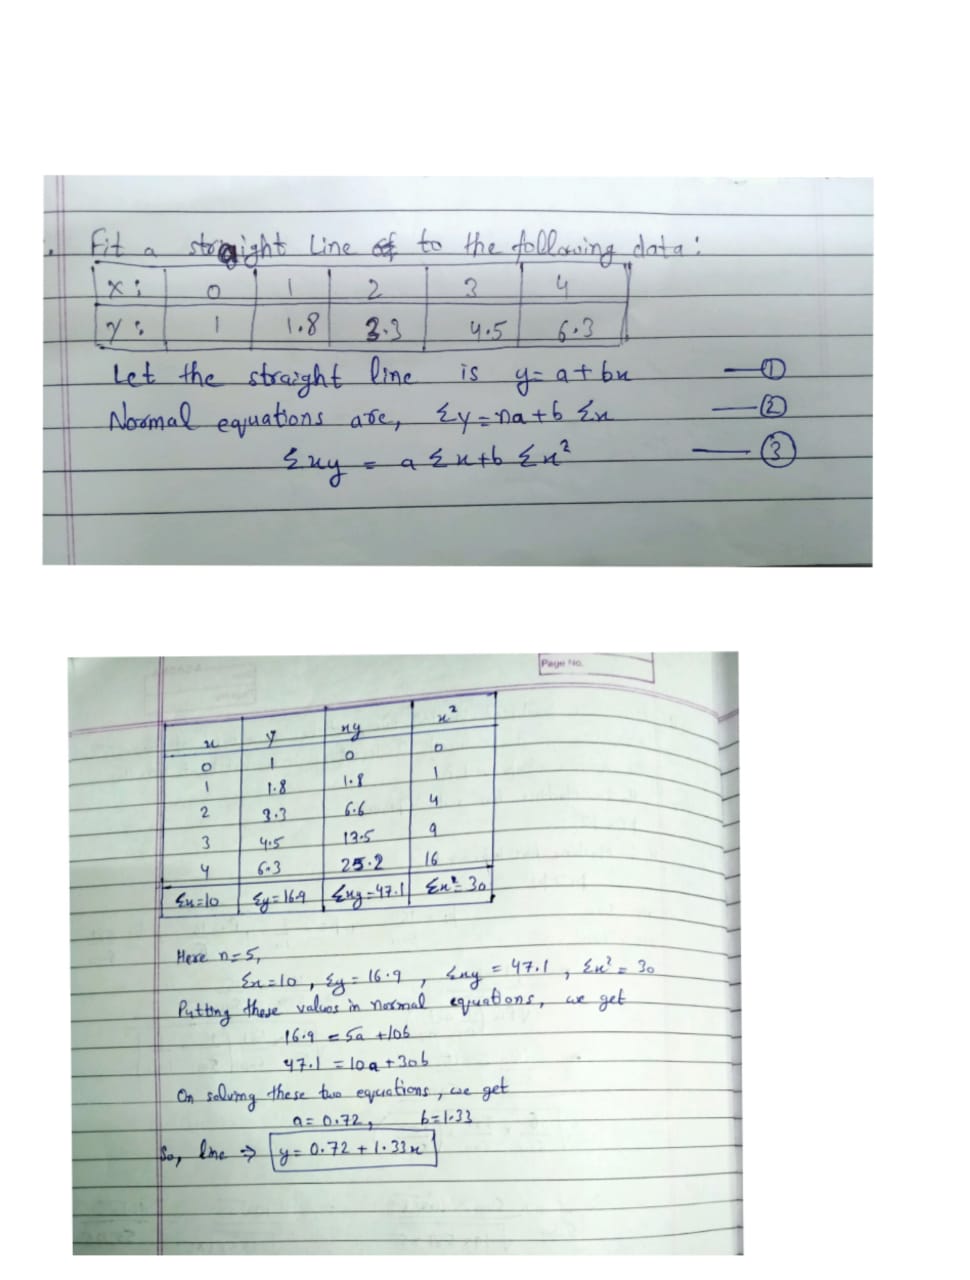 Fit a straight Line to the following data:
x: 0 1 2 3 4
y: 1 1.8 3.3 4.5 6.3
Let the straight line is y = a + bx —①
Normal equations are, Σy = na + b Σx —②
Σxy = a Σx + b Σx² —③
Page No.
x y xy x²
0 1 0 0
1 1.8 1.8 1
2 3.3 6.6 4
3 4.5 13.5 9
4 6.3 25.2 16
Σx=10 Σy=16.9 Σxy=47.1 Σx²=30
Here n=5,
Σx=10, Σy=16.9, Σxy = 47.1, Σx² = 30
Putting these values in normal equations, we get
16.9 = 5a + 10b
47.1 = 10a + 30b
On solving these two equations, we get
a = 0.72, b=1.33
So, line ⇒ y = 0.72 + 1.33x